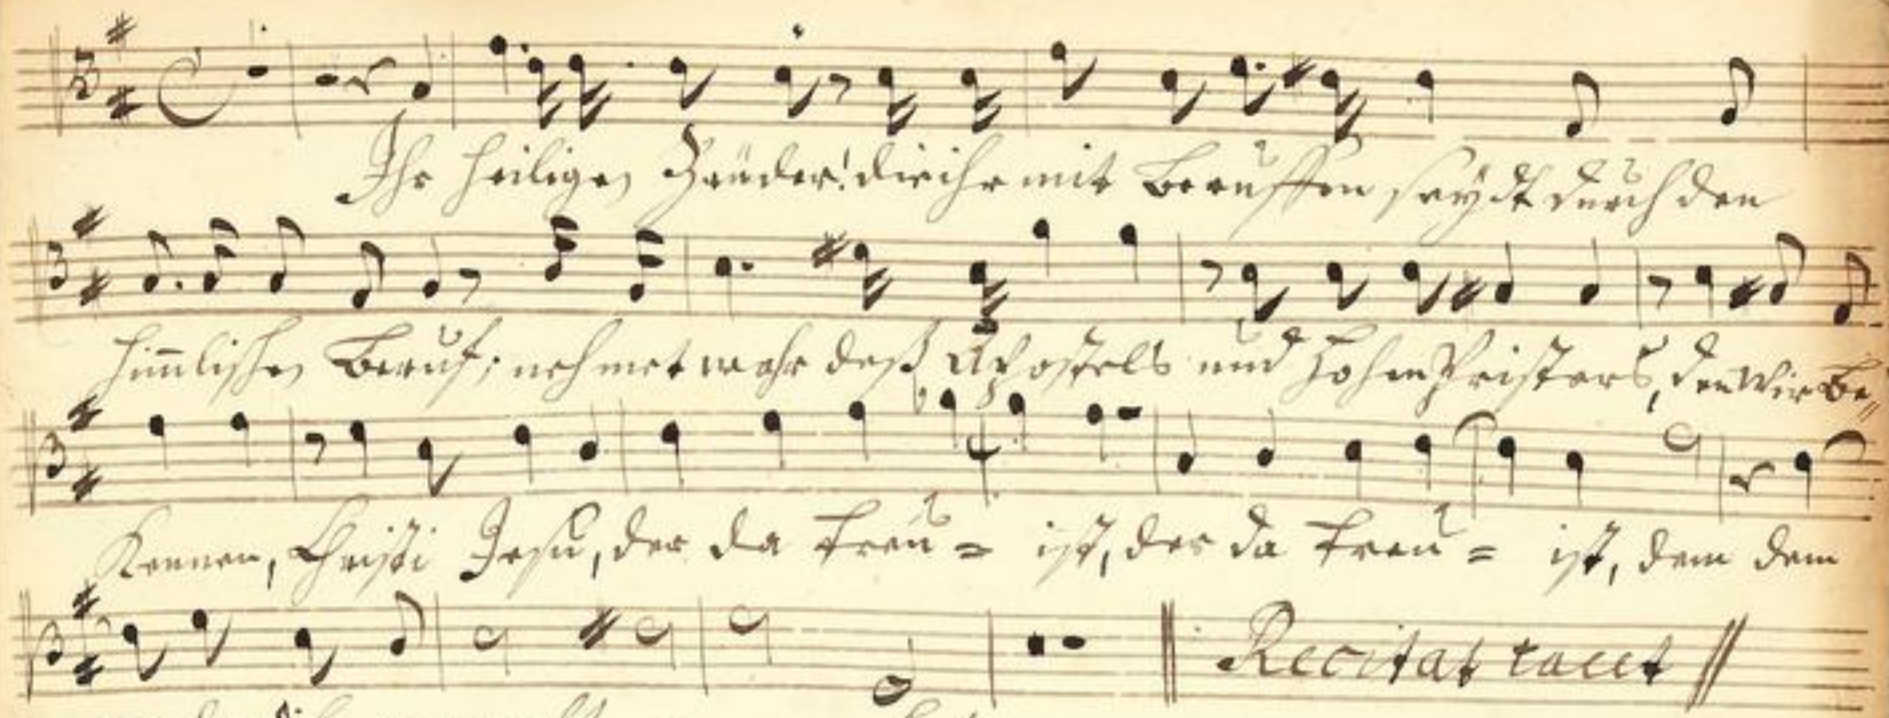 Ihr heiligen Brüder! die ihr mit beruffen seydt durch den
himmlischen Beruf; nehmet wahr deß Apostels und Hohenpristers, den wir be=
kennen, Christi Jesu, der da treu = ist, der da treu = ist, dem dem
Recitat tacet